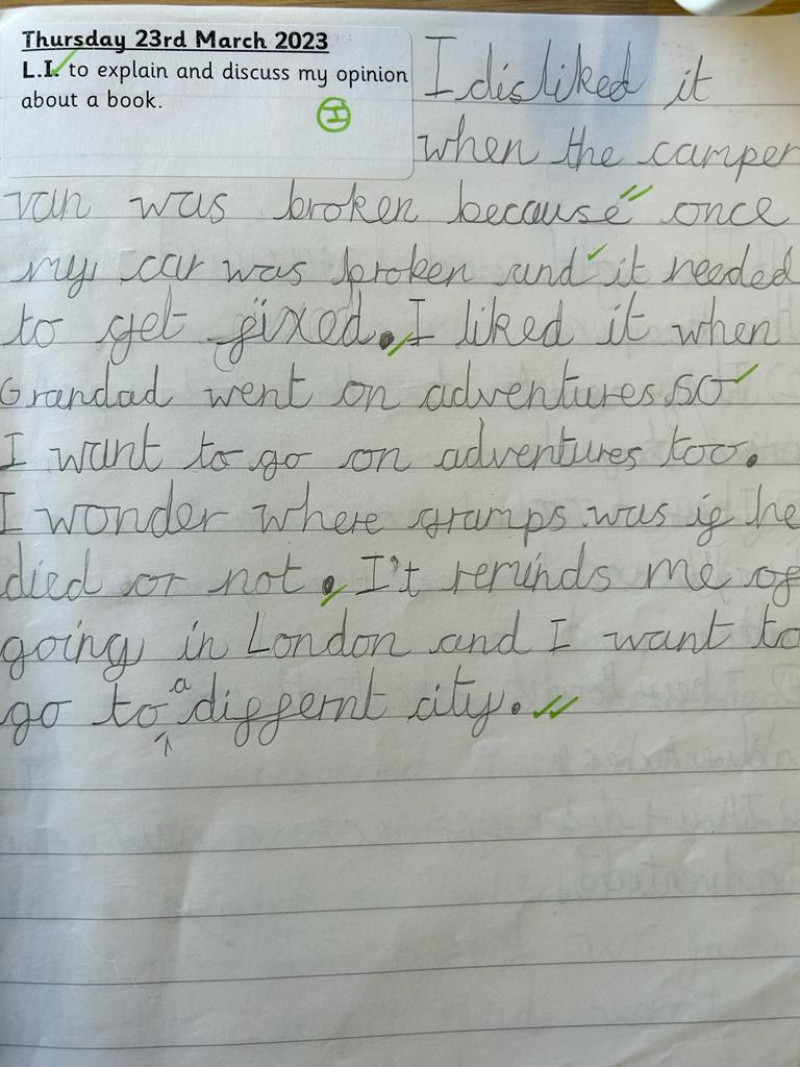 Thursday 23rd March 2023
L.I. to explain and discuss my opinion
about a book.
H
I disliked it
when the camper
van was broken because once
my car was broken and it needed
to get fixed. I liked it when
Grandad went on adventures so
I want to go on adventures too.
I wonder where gramps was if he
died or not. I't reminds me of
going in London and I want to
go to a differnt city.